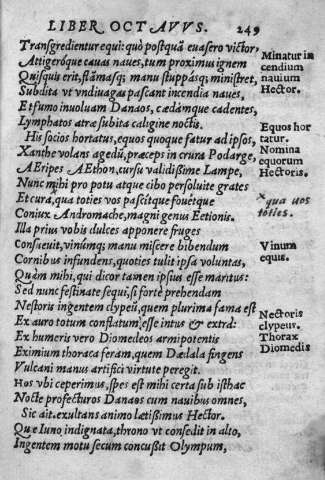 LIBER OCTAVVS. 249
Transgredientur equi: quò postquā euasero victor,
Attigeróque cauas naues, tum proximus ignem
Quisquis erit, flāmasq; manu stuppásq; ministret,
Subdita vt vndiuagas pascant incendia naues,
Et fumo inuoluam Danaos, cædámque cadentes,
Lymphatos atræ subita caligine noctis.
His socios hortatus, equos quoque fatur ad ipsos,
Xanthe volans agedū, præceps in crura Podarge,
AEripes AEthon, cursu validissime Lampe,
Nunc mihi pro potu atque cibo persoluite grates
Et cura, qua toties vos pascitque fouetque
Coniux Andromache, magni genus Eetionis.
Illa prius vobis dulces apponere fruges
Consueuit, vinúmq; manu miscere bibendum
Cornibus infundens, quoties tulit ipsa voluntas,
Quàm mihi, qui dicor tamen ipsius esse maritus:
Sed nunc festinate sequi, si forte prehendam
Nestoris ingentem clypeū, quem plurima fama est
Ex auro totum conflatum, esse intus & extrà:
Ex humeris vero Diomedeos armipotentis
Eximium thoraca feram, quem Dædala fingens
Vulcani manus artifici virtute peregit.
Hos vbi ceperimus, spes est mihi certa sub isthac
Nocte profecturos Danaos cum nauibus omnes,
Sic ait. exultans animo lætissimus Hector.
Que Iuno indignata, throno vt consedit in alto,
Ingentem motu secum concussit Olympum,
Minatur in
cendium
nauium
Hector.
Equos hor
tatur.
Nomina
equorum
Hectoris.
* qua uos
toties.
Vinum
equis.
Nectoris
clypeus.
Thorax
Diomedis